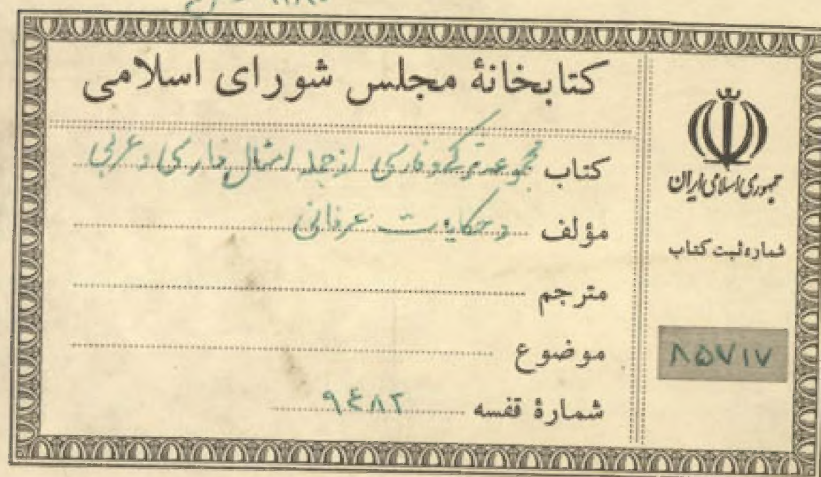 کتابخانهٔ مجلس شورای اسلامی
کتاب مجموعه ترکی و فارسی از جمله امثال فارسی و عربی
مؤلف و حکایت عرفانی
مترجم
موضوع
شمارهٔ قفسه ۹۴۸۲
جمهوری اسلامی ایران
شماره ثبت کتاب
۸۵۷۱۷